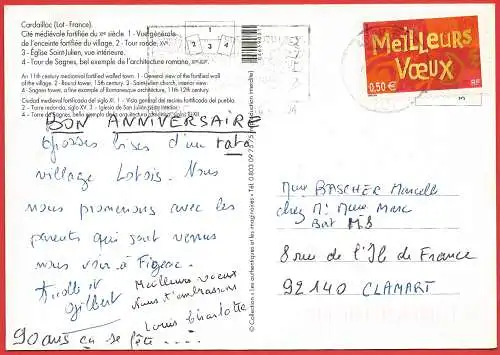 Cardaillac (Lot - France).
Cité médiévale fortifiée du XIe siècle. 1 - Vue générale
de l'enceinte fortifiée du village. 2 - Tour ronde, XVe.
3 - Église Saint-Julien, vue intérieure.
4 - Tour de Sagnes, bel exemple de l'architecture romane,
An 11th century medieval fortified town. 1 - General view of the fortified wall
of the village. 2 - Round tower, 15th century. 3 - Saint-Julien church, interior view.
4 - Sagnes tower, a fine example of Romanesque architecture, 11th 12th century.
Ciudad medieval fortificada del siglo XI. 1 - Vista general del recinto fortificado del pueblo.
2 - Torre redonda, siglo XV. 3 - Iglesia de San Julien
4 - Torre de Sagnes, bel
BON ANNIVERSAIRE
Grosses bises d'un
village Lotois. Nous
nous promenons avec les
parents qui sont venus
nous voir à Figeac.
Gilbert
Meilleurs voeux
Nous t'embrassons
Louis Charlotte
90 ans ça se fête ....
© Collection : Les authentiques et les imaginaires - Tél 0 803 09 25
MEILLEURS
VŒUX
0,50 €
RF
Mme BASCHER Marcelle
chez Mr Mme Marc
Bat
8 rue de l'Ile de France
92140 CLAMART